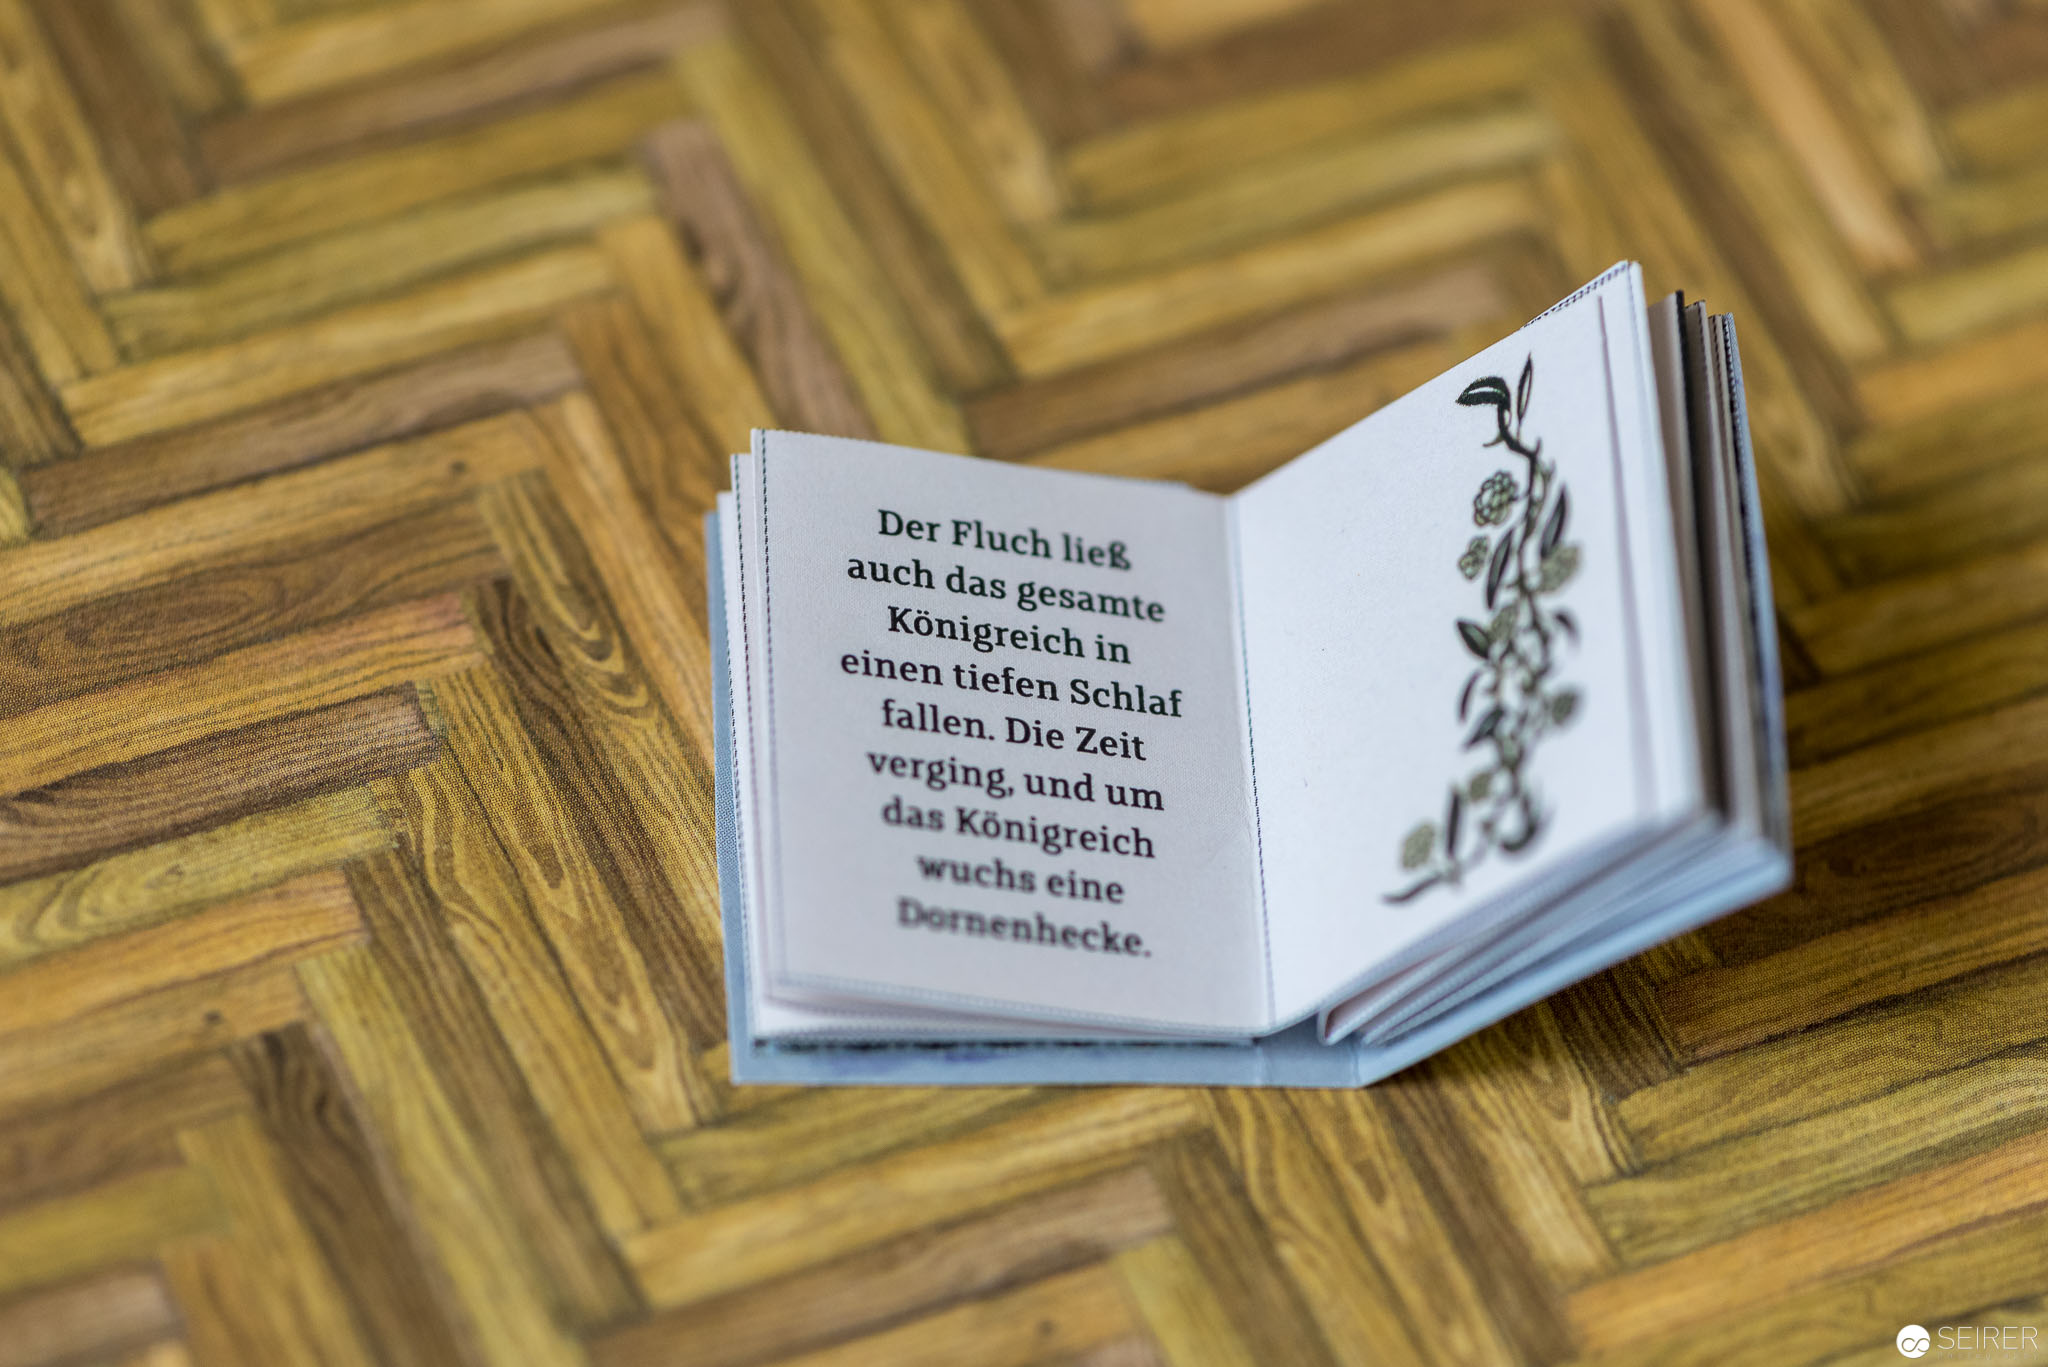 Der Fluch ließ
auch das gesamte
Königreich in
einen tiefen Schlaf
fallen. Die Zeit
verging, und um
das Königreich
wuchs eine
Dornenhecke.
SEIRER